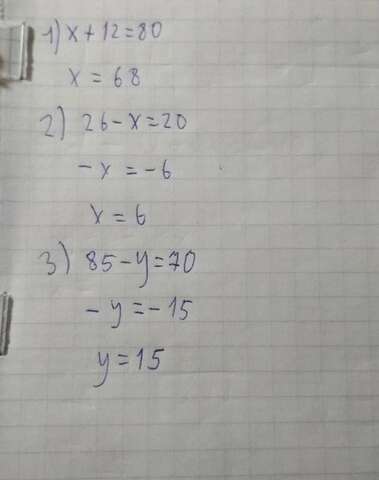 1) x + 12 = 80
x = 68
2) 26 - x = 20
- x = - 6
x = 6
3) 85 - y = 70
- y = - 15
y = 15